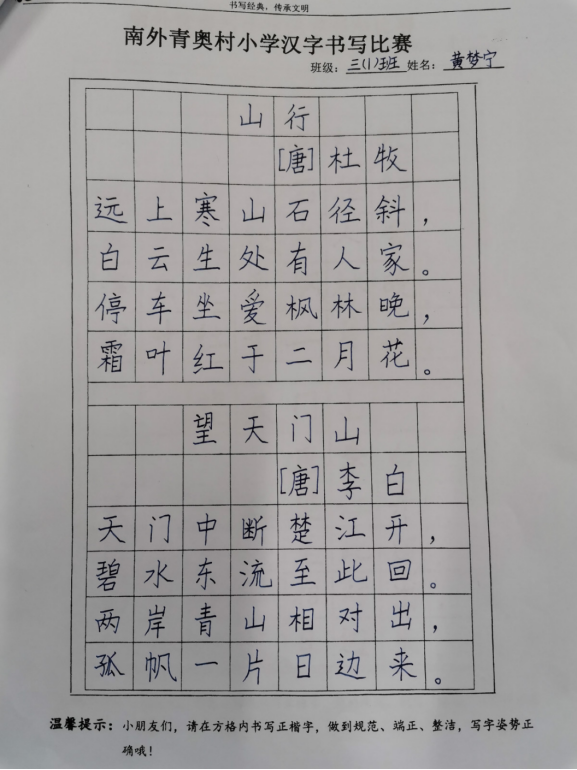 书写经典，传承文明
南外青奥村小学汉字书写比赛
班级：三(1)班 姓名：黄梦宁
山行
[唐]杜牧
远上寒山石径斜，
白云生处有人家。
停车坐爱枫林晚，
霜叶红于二月花。
望天门山
[唐]李白
天门中断楚江开，
碧水东流至此回。
两岸青山相对出，
孤帆一片日边来。
温馨提示：小朋友们，请在方格内书写正楷字，做到规范、端正、整洁，写字姿势正
确哦！